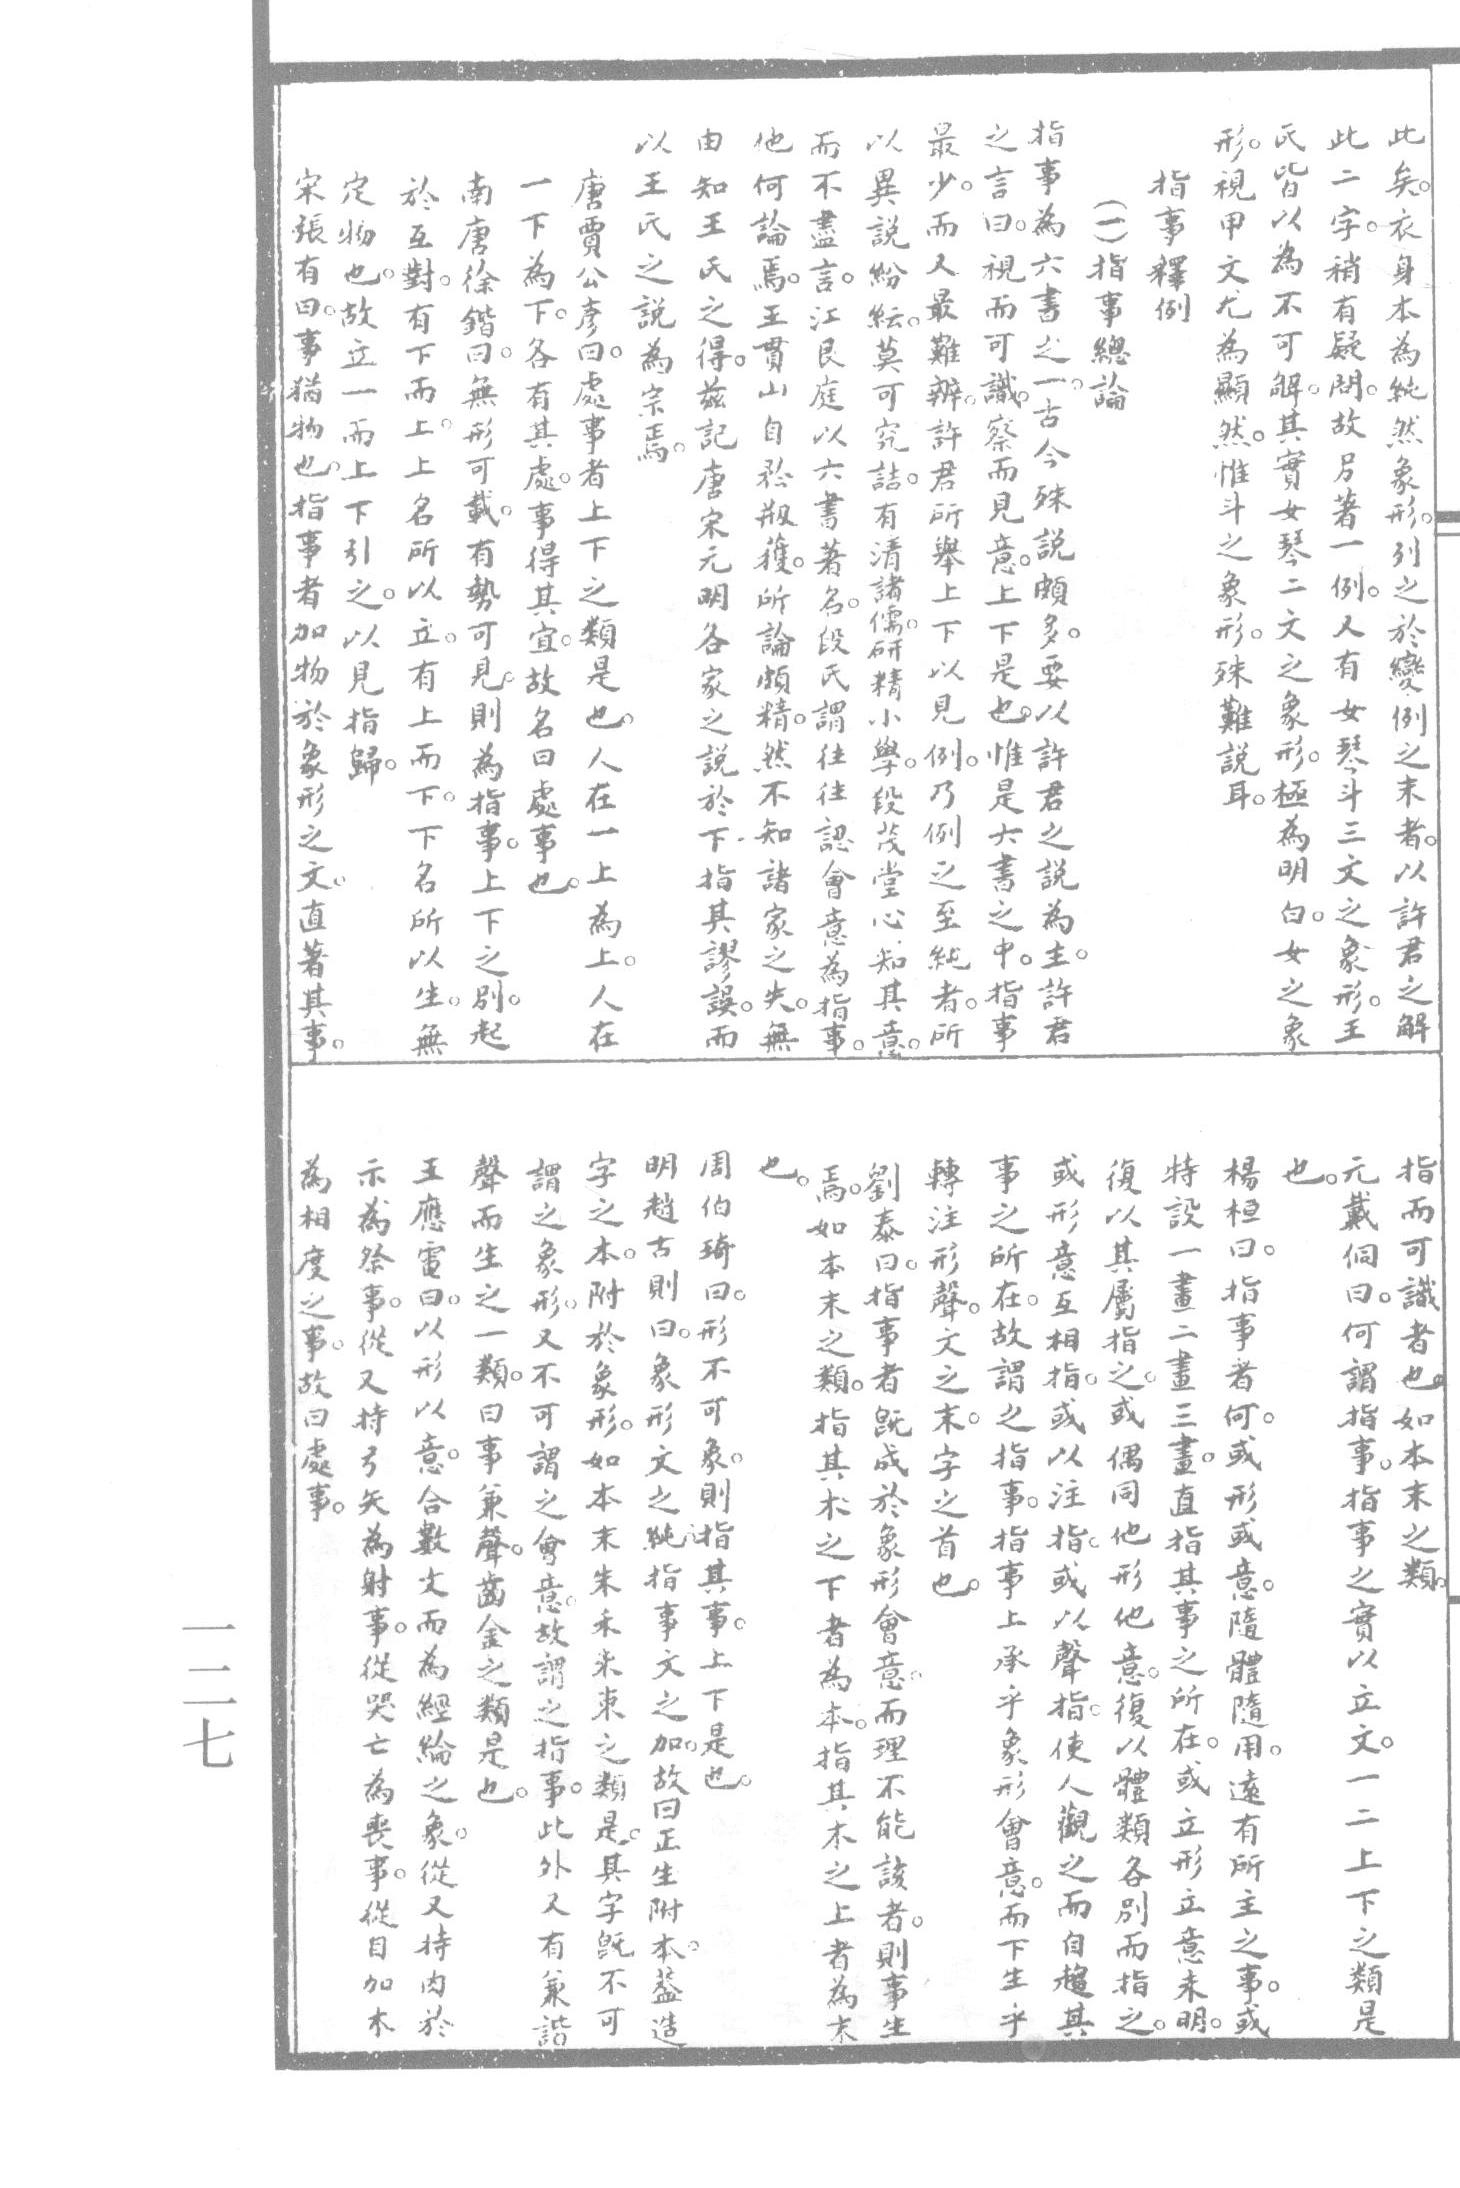 此矣。衣身本為純然象形。列之於變例之末者。以許君之解
此二字。稍有疑問。故另著一例。又有女琴斗三文之象形。王
氏皆以為不可解。其實女琴二文之象形。極為明白。女之象
形。視甲文尤為顯然。惟斗之象形。殊難說耳。
指事釋例
(一)指事總論
指事為六書之一。古今殊說頗多。要以許君之說為主。許君
之言曰。視而可識。察而見意。上下是也。惟是六書之中。指事
最少。而又最難辨。許君所舉上下以見例。乃例之至純者。所
以異說紛紜。莫可究詰。有清諸儒。研精小學。段茂堂心知其意。
而不盡言。江艮庭以六書著名。段氏謂往往認會意為指事。
他何論焉。王貫山自矜剏獲。所論頗精。然不知諸家之失。無
由知王氏之得。茲記唐宋元明各家之說於下。指其謬誤。而
以王氏之說為宗焉。
唐賈公彥曰。處事者上下之類是也。人在一上為上。人在
一下為下。各有其處。事得其宜。故名曰處事也。
南唐徐鍇曰。無形可載。有勢可見。則為指事。上下之別。起
於互對。有下而上。上名所以立。有上而下。下名所以生。無
定物也。故立一而上下引之。以見指歸。
宋張有曰。事猶物也。指事者加物於象形之文。直著其事。
指而可識者也。如本末之類。
元戴侗曰。何謂指事。指事之實以立文。一二上下之類是
也。
楊桓曰。指事者何。或形或意。隨體隨用。遠有所主之事。或
特設一畫二畫三畫。直指其事之所在。或立形立意未明。
復以其屬指之。或偶同他形他意。復以體類各別而指之。
或形意互相指。或以注指。或以聲指。使人觀之而自趨其
事之所在。故謂之指事。指事上承乎象形會意。而下生乎
轉注形聲。文之末。字之首也。
劉泰曰。指事者既成於象形會意。而理不能該者。則事生
焉。如本末之類。指其木之下者為本。指其木之上者為末
也。
周伯琦曰。形不可象。則指其事。上下是也。
明趙古則曰。象形文之純。指事文之加。故曰正生附本。蓋造
字之本。附於象形。如本末朱禾朿束之類是。其字既不可
謂之象形。又不可謂之會意。故謂之指事。此外又有兼諧
聲而生之一類。曰事兼聲。齒金之類是也。
王應電曰。以形以意。合數文而為經綸之象。從又持肉於
示為祭事。從又持弓矢為射事。從哭亡為喪事。從目加木
為相度之事。故曰處事。
一二七